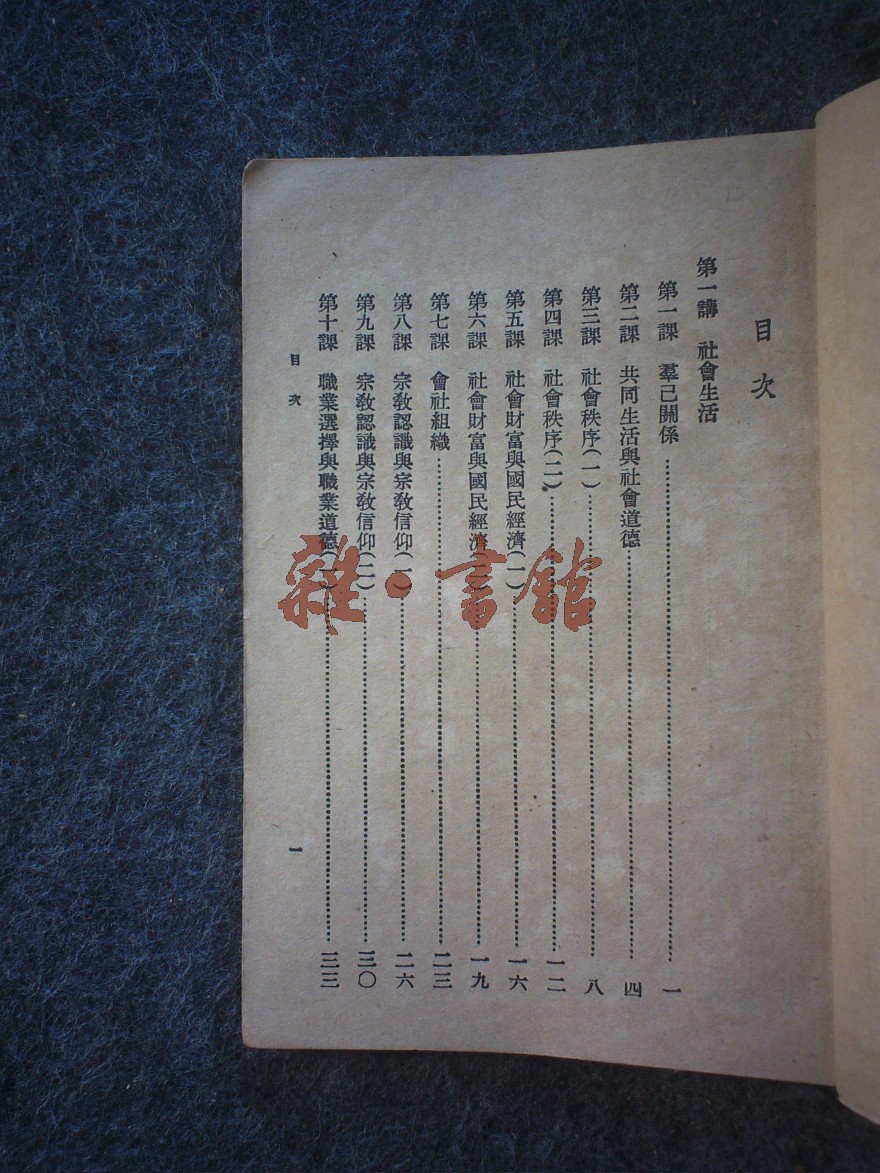 目次
第一講 社會生活
第一課 羣己關係……一
第二課 共同生活與社會道德……四
第三課 社會秩序(一)……八
第四課 社會秩序(二)……一二
第五課 社會財富與國民經濟(一)……一六
第六課 社會財富與國民經濟(二)……一九
第七課 會社組織……二三
第八課 宗敎認識與宗敎信仰(一)……二六
第九課 宗敎認識與宗敎信仰(二)……三〇
第十課 職業選擇與職業道德(一)……三三
目次 一
雜·書館